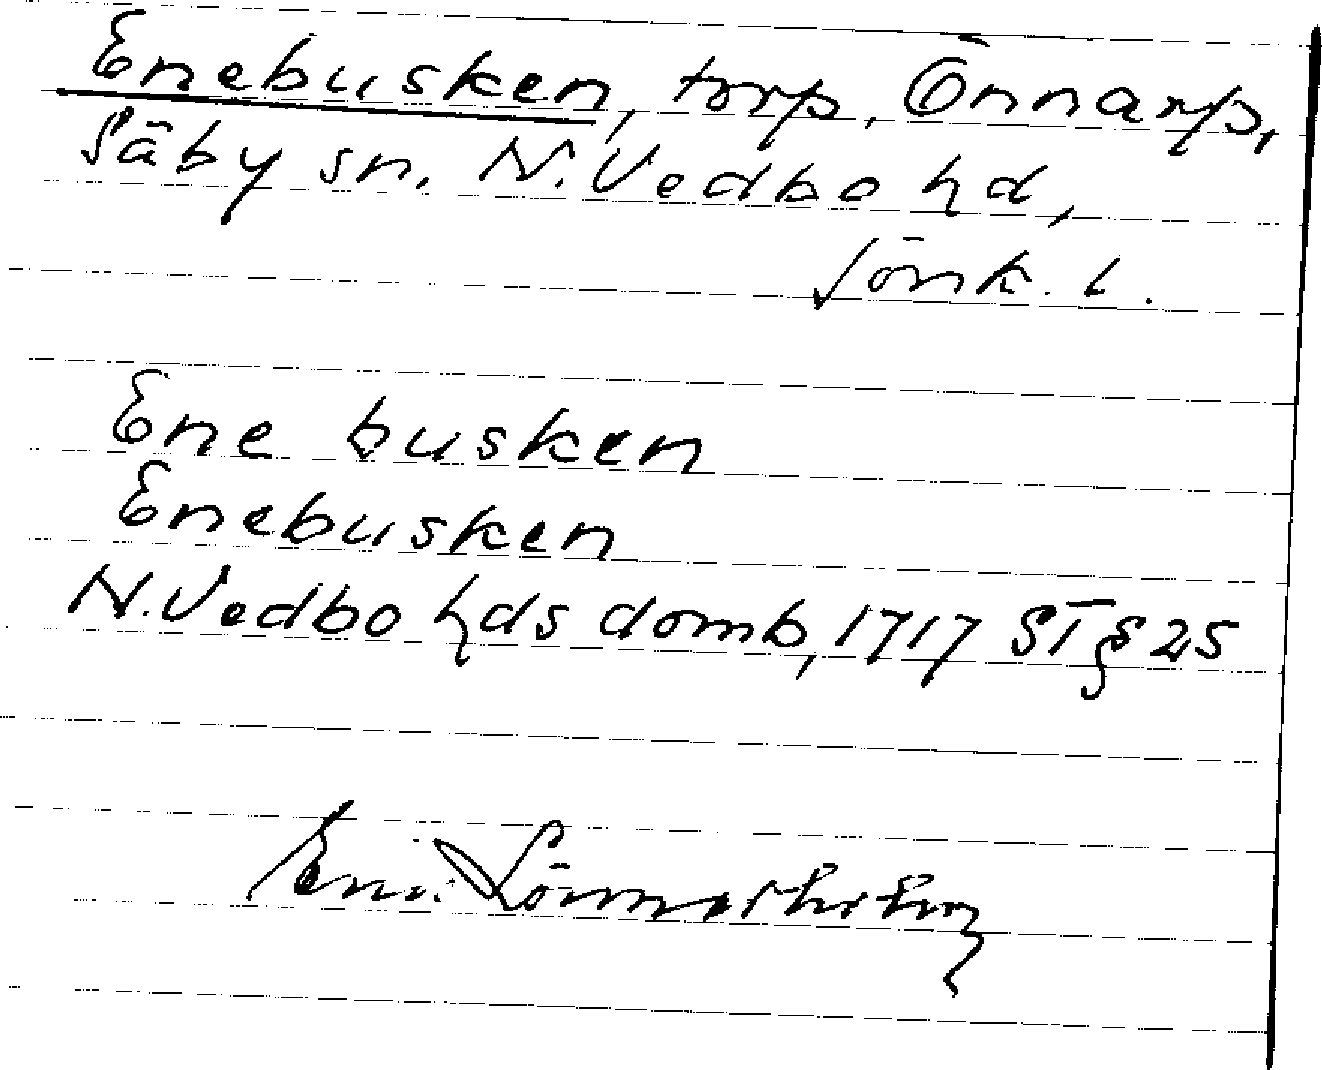 Enebusken, torp, Önnarp,
Säby sn. N. Vedbo hd,
Jönk. l.
Ene busken
Enebusken
N. Vedbo hds domb, 1717 ST § 25